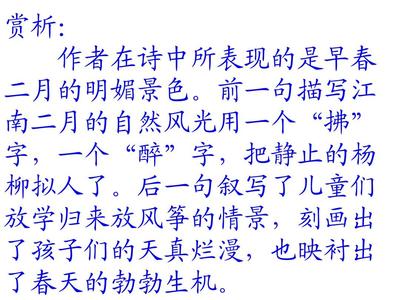 赏析：
作者在诗中所表现的是早春
二月的明媚景色。前一句描写江
南二月的自然风光用一个“拂”
字，一个“醉”字，把静止的杨
柳拟人了。后一句叙写了儿童们
放学归来放风筝的情景，刻画出
了孩子们的天真烂漫，也映衬出
了春天的勃勃生机。